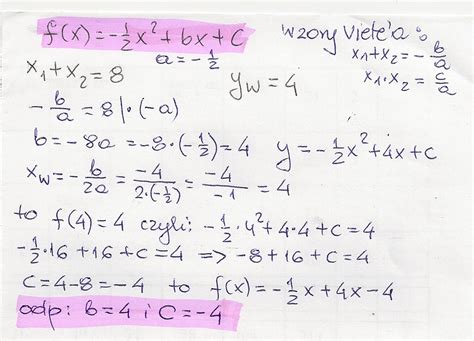 f(x) = -½x² + bx + c
a = -½
wzory Viete'a:
x₁+x₂ = -b/a
x₁·x₂ = c/a
x₁+x₂ = 8
yw = 4
-b/a = 8 |·(-a)
b = -8a = -8·(-½) = 4   y = -½x²+4x+c
xw = -b/2a = -4/2·(-½) = -4/-1 = 4
to f(4) = 4 czyli: -½·4²+4·4+c = 4
-½·16+16+c = 4 => -8+16+c = 4
c = 4-8 = -4 to f(x) = -½x+4x-4
odp: b = 4 i c = -4